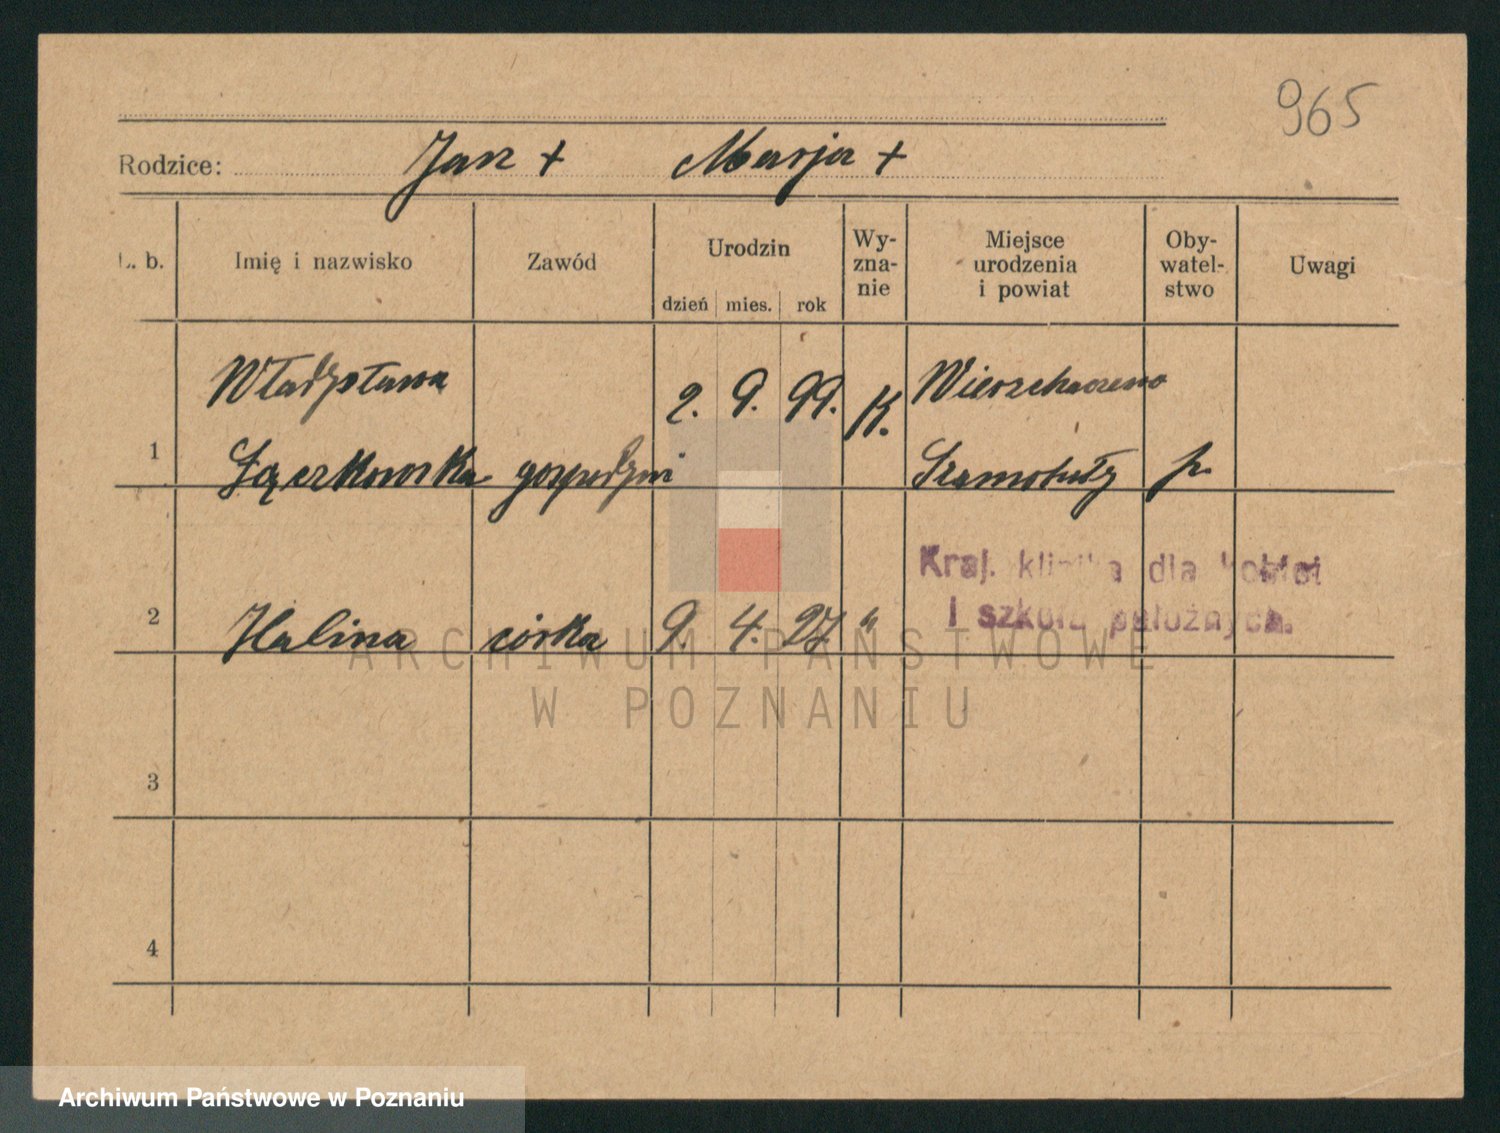 965
Rodzice: Jan + Marja +
L. b. Imię i nazwisko Zawód Urodzin Wy- zna- nie Miejsce urodzenia i powiat Oby- watel- stwo Uwagi
dzień mies. rok
Władysława 2. 9. 99. K. Wierzchaczewo
1 Łączkowska gospodyni Szamotuły p.
Kraj. klinika dla kobiet
i szkoła położnych.
2 Halina córka 9. 4. 27. "
ARCHIWUM PAŃSTWOWE
W POZNANIU
3
4
Archiwum Państwowe w Poznaniu